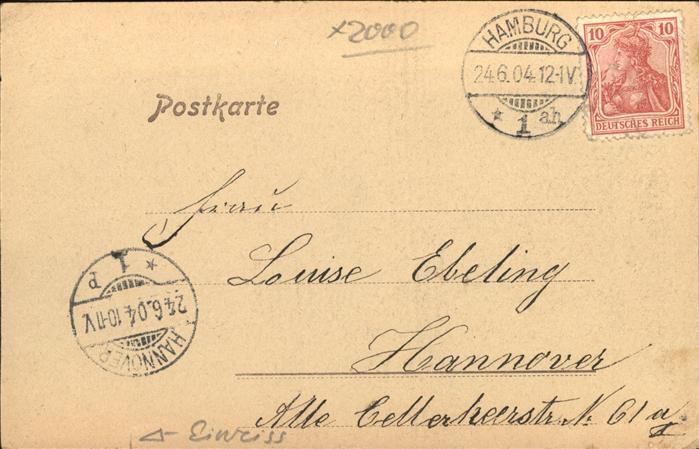 x2000
HAMBURG
24.6.04.12-1V
* 1 ah
10 10
DEUTSCHES REICH
Postkarte
Frau
Louise Ebeling
Hannover
Alte Cellerheerstr. N. 61 a
HANNOVER
24.6.04.10-11V.
* 1 p
Einriss